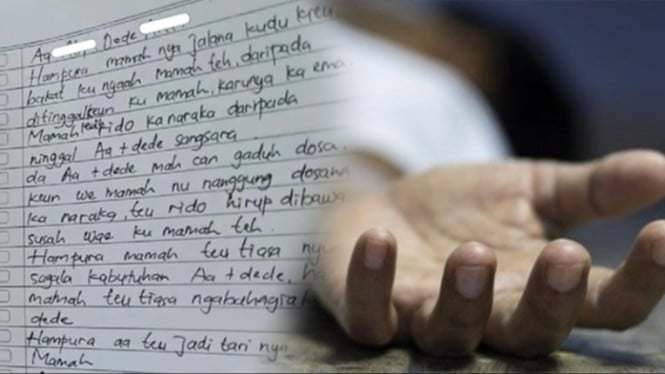 Aa Dede
Hampura mamah nya jalana kudu kieu
bakat ku nyaah mamah teh, daripada
ditinggalkeun ku mamah, karunya ka ema
Mamah rido ka naraka daripada
ninggal Aa + dede sangsara.
da Aa + dede mah can gaduh dosa.
keun we mamah nu nanggung dosana
ka naraka, teu rido hirup dibawa
susah wae ku mamah teh.
Hampura mamah teu tiasa
sagala kabutuhan Aa + dede,
mamah teu tiasa
dede
Hampura aa teu jadi tari nya
Mamah